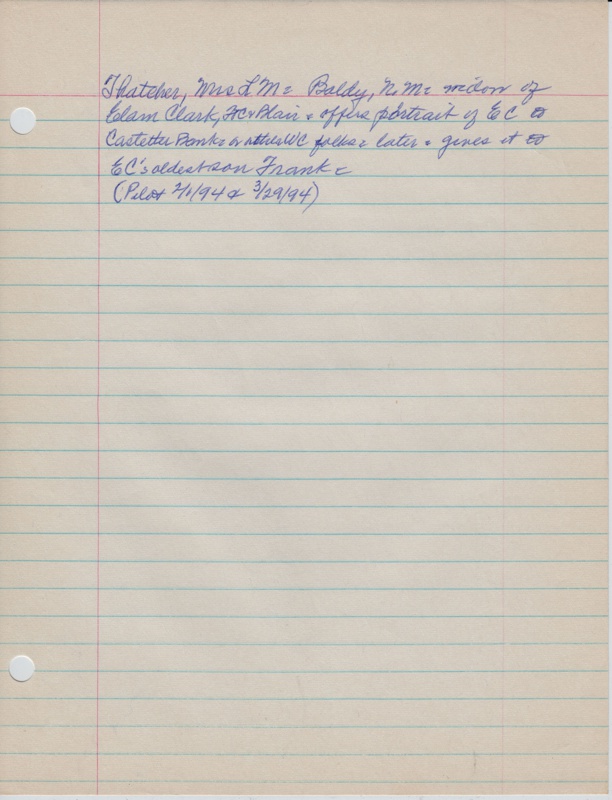 Thatcher, Mrs L M = Baldy, N.M = widow of
Elam Clark, FtC & Blair = offers portrait of EC to
Castetter Bank = or other WC folks = later = gives it to
EC's oldest son Frank =
(Pilot 2/1/94 & 3/29/94)